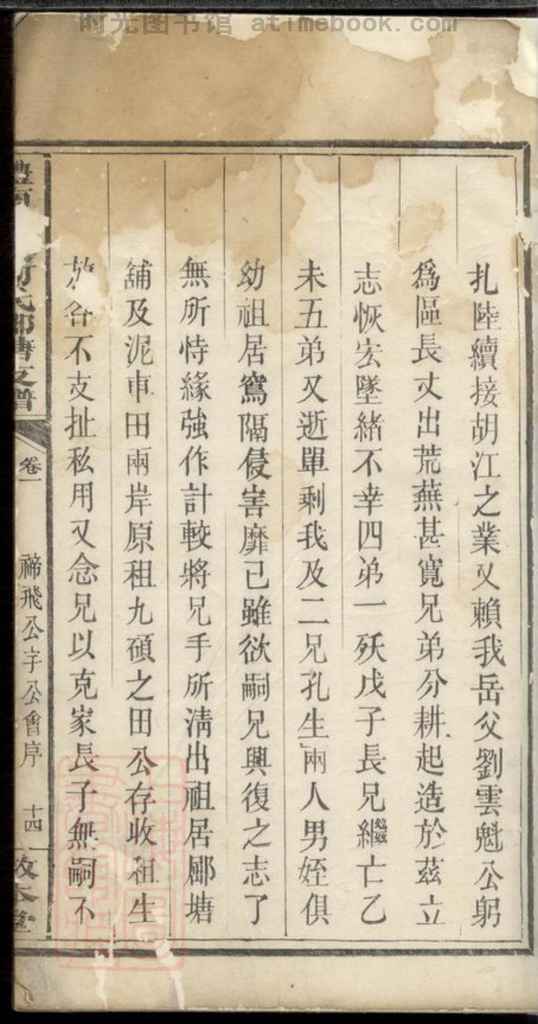 时光图书馆 atimebook.com
扎陸續接胡江之業又賴我岳父劉雲魁公躬
爲區長丈出荒蕪甚寬兄弟分耕起造於茲立
志恢宏墜緒不幸四弟一殀戊子長兄繼亡乙
未五弟又逝單剩我及二兄孔生兩人男姪俱
幼祖居窵隔侵害靡已雖欲嗣兄興復之志了
無所恃緣強作計較將兄手所清出祖居郿塘
舖及泥車田兩岸原祖九碩之田公存收租生
放各不支扯私用又念兄以克家長子無嗣不
支譜
卷一
禘飛公字公會序
十四